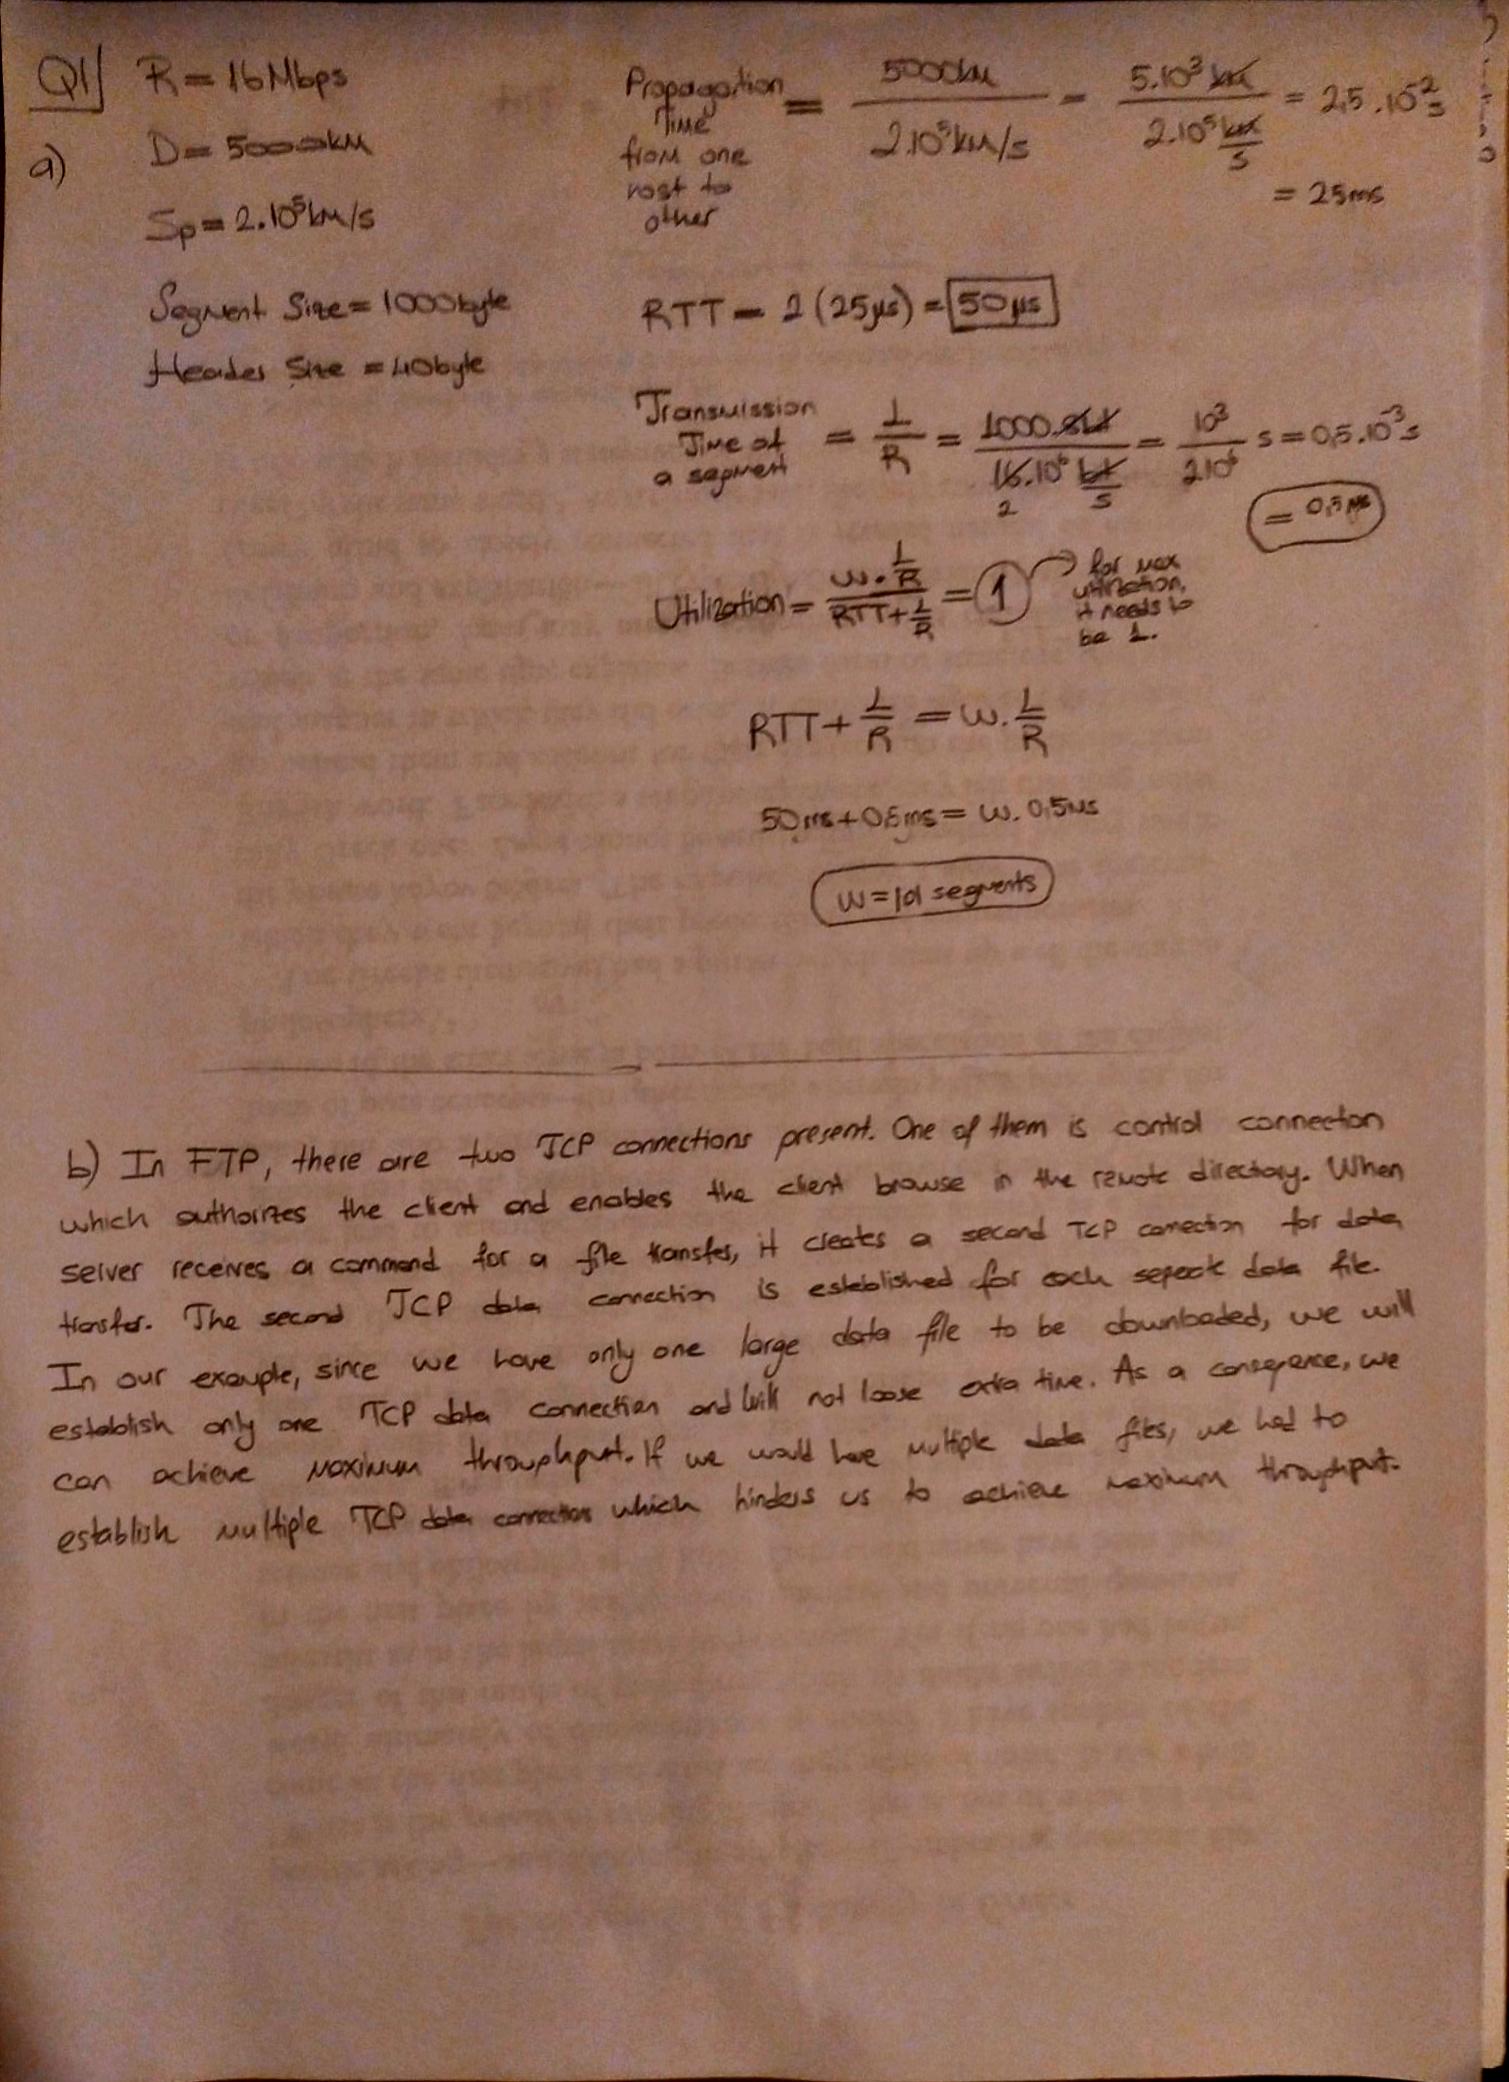 Q1
R = 16 Mbps
a)
D = 5000 km
Sp = 2.10^5 km/s
Segment Size = 1000 byte
Header Size = 40 byte
Propagation Time from one host to other = 5000km / 2.10^5 km/s = 5.10^3 km / 2.10^5 km/s = 2,5.10^-2 s
= 25ms
RTT = 2 (25µs) = 50 µs
Transmission Time of a segment = L/R = 1000.8bit / 16.10^6 bit/s = 10^3 / 2.10^6 s = 0,5.10^-3 s
2
= 0,5 ms
Utilization = w.L/R / RTT+L/R = 1 → for max utilization, it needs to be 1.
RTT + L/R = w. L/R
50ms + 0,5ms = w. 0,5ms
w = 101 segments
b) In FTP, there are two TCP connections present. One of them is control connection
which authorizes the client and enables the client browse in the remote directory. When
server receives a command for a file transfer, it creates a second TCP connection for data
transfer. The second TCP data connection is established for each seperate data file.
In our example, since we have only one large data file to be downloaded, we will
establish only one TCP data connection and will not loose extra time. As a consequence, we
can achieve maximum throughput. If we would have multiple data files, we had to
establish multiple TCP data connections which hinders us to achieve maximum throughput.